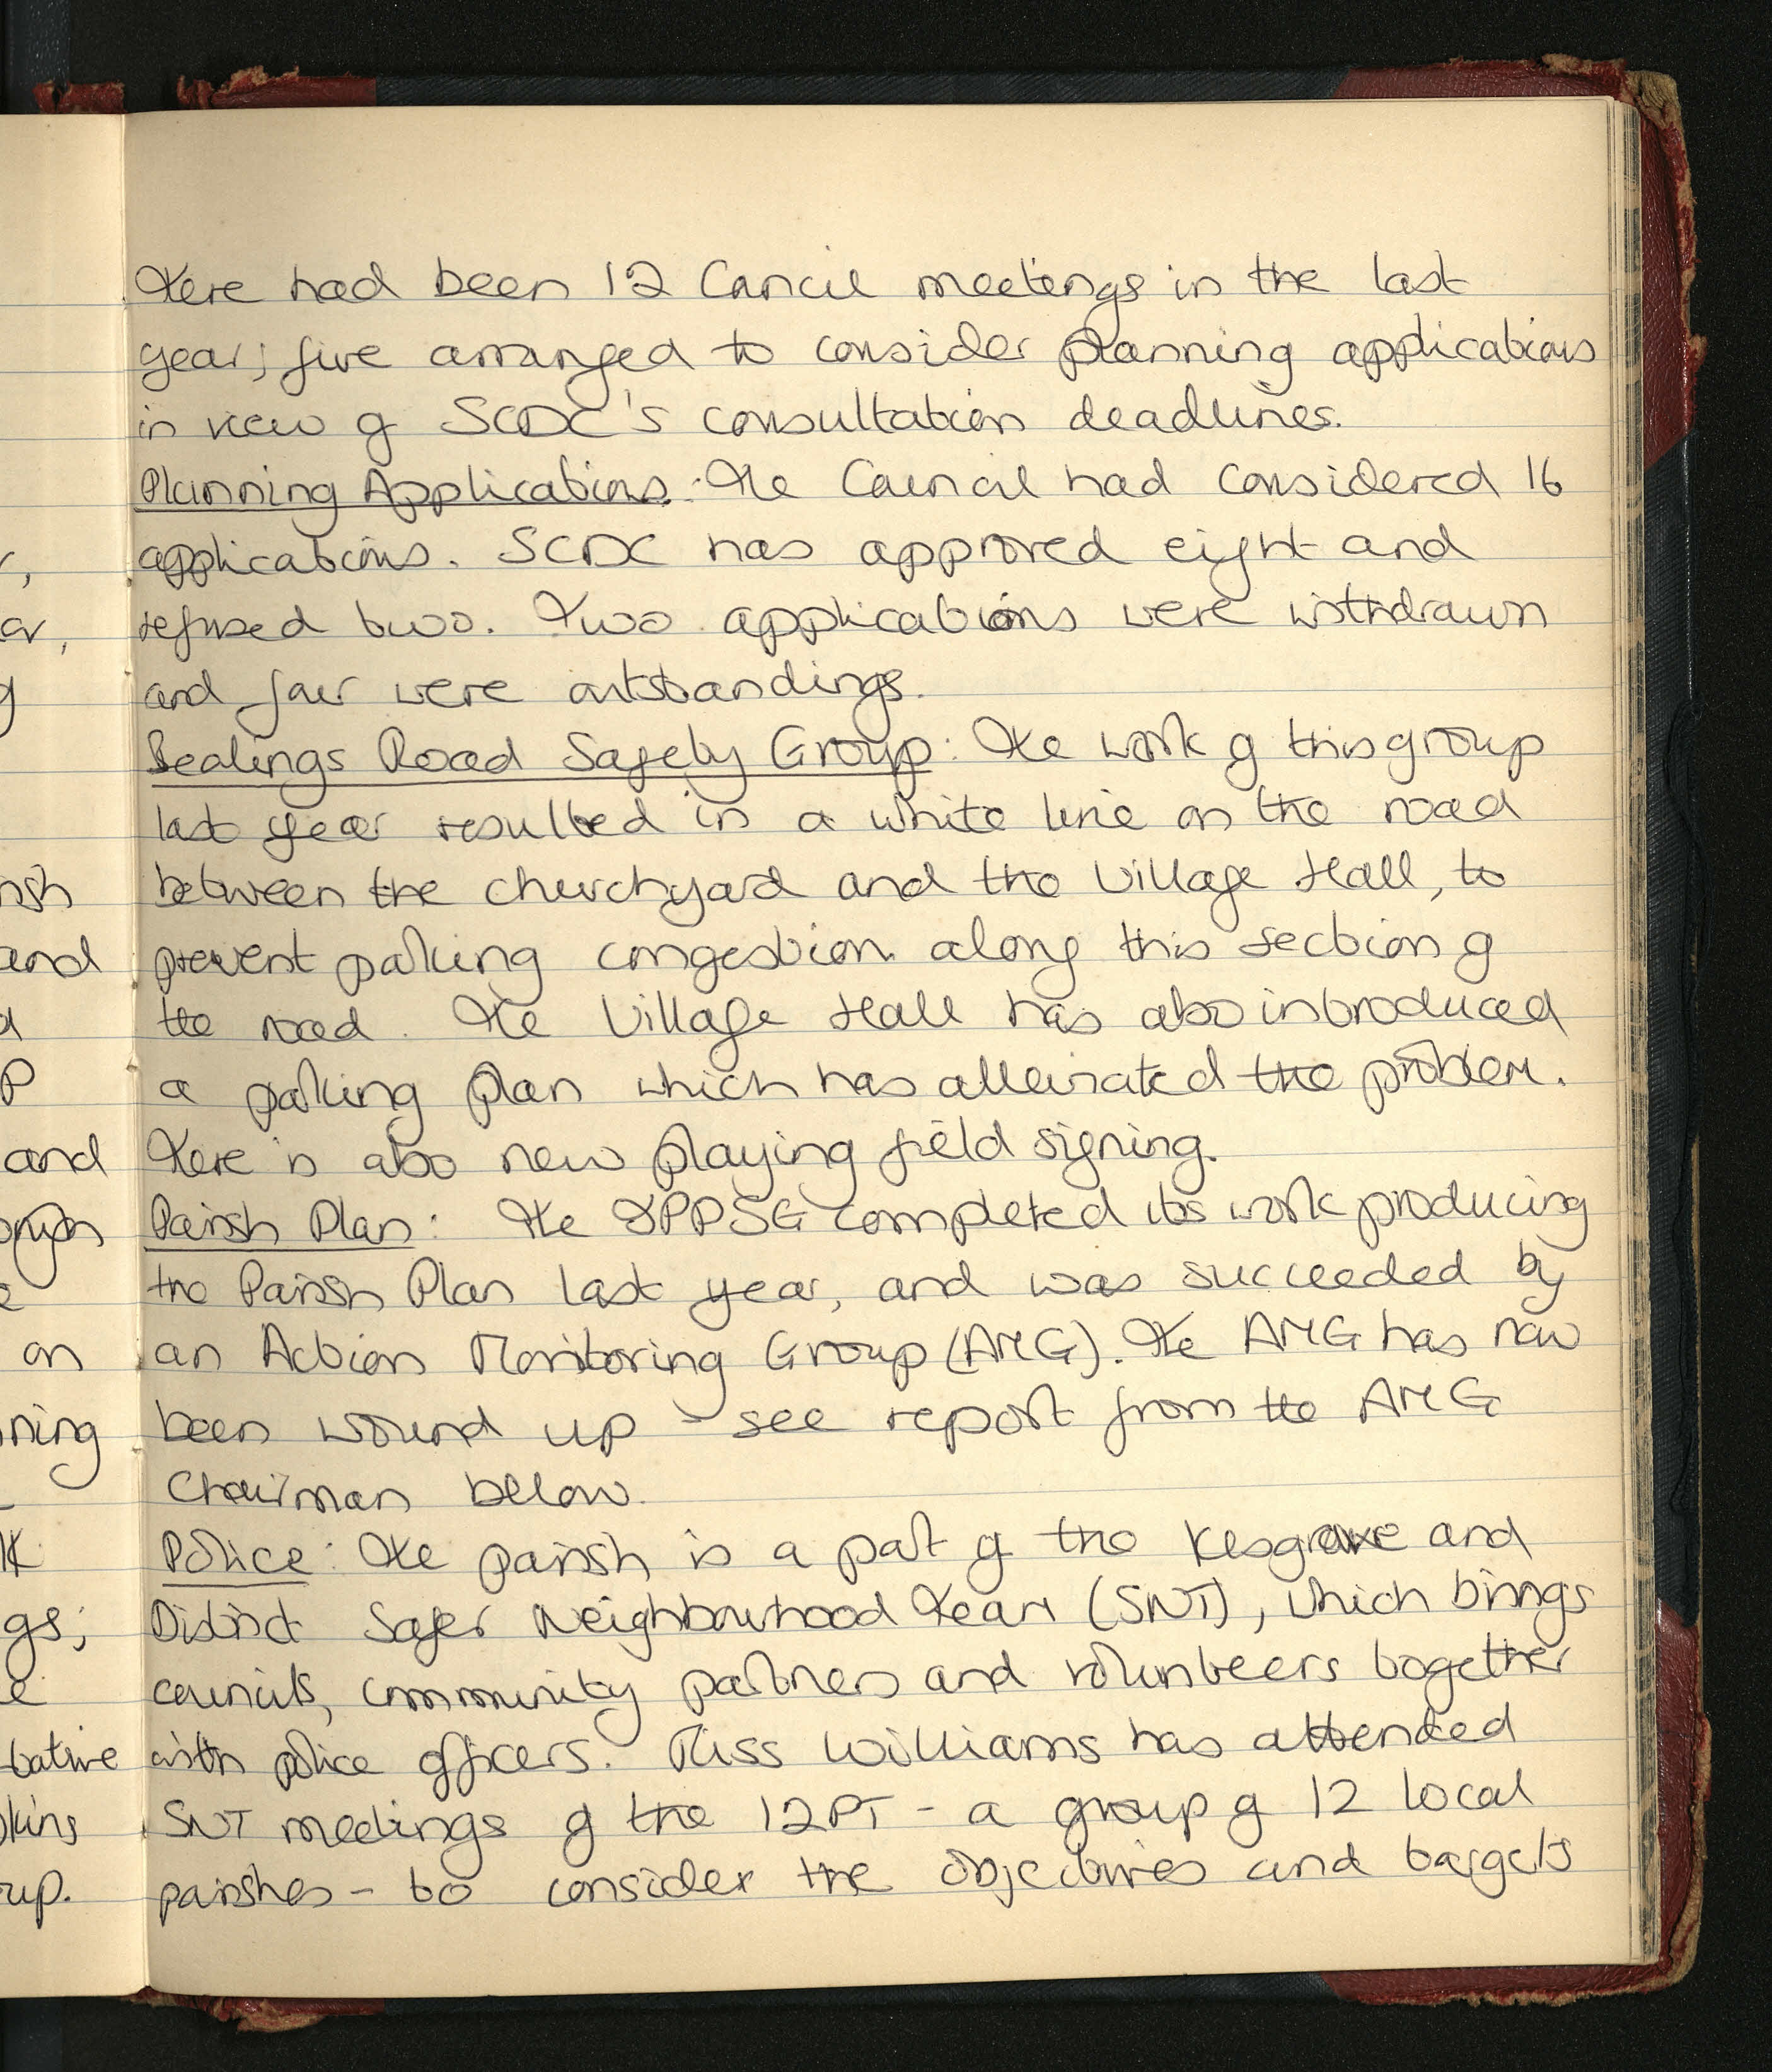 There had been 12 Council meetings in the last
year; five arranged to consider planning applications
in view of SCDC's consultation deadlines.
Planning Applications: The Council had considered 16
applications. SCDC has approved eight and
refused two. Two applications were withdrawn
and four were outstandings.
Bealings Road Safety Group: The work of this group
last year resulted in a white line on the road
between the churchyard and the Village Hall, to
prevent parking congestion along this section of
the road. The Village Hall has also introduced
a parking plan which has alleviated the problem.
There is also new playing field signing.
Parish Plan: The PPSG completed its work producing
the Parish Plan last year, and was succeeded by
an Action Monitoring Group (AMG). The AMG has now
been wound up - see report from the AMG
Chairman below.
Police: The parish is a part of the Kesgrave and
District Safer Neighbourhood Team (SNT), which brings
councils, community partners and volunteers together
with police officers. Miss Williams has attended
SNT meetings of the 12PT - a group of 12 local
parishes - to consider the objectives and targets